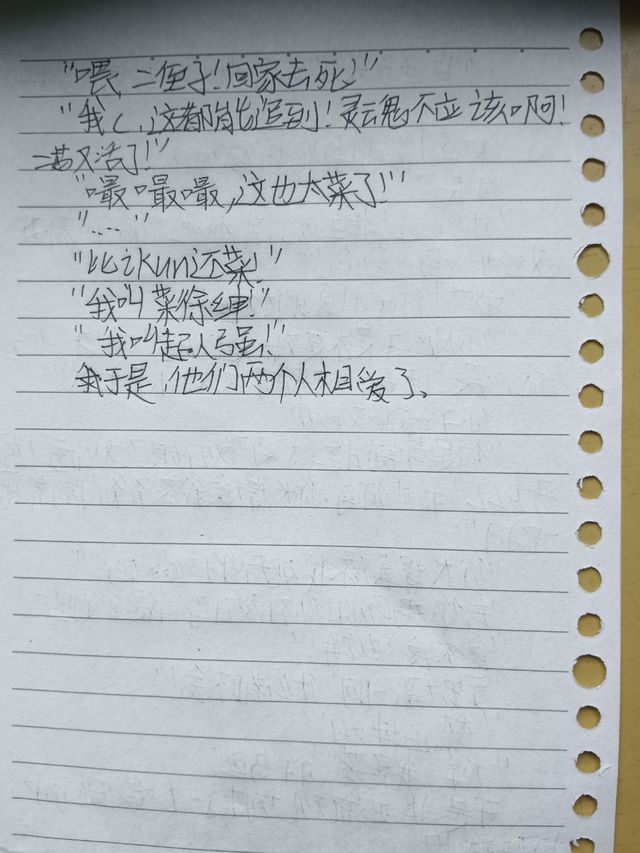 "喂,二狍子!回家去死!"
"我c,这都能追到!灵魂不应该啊!
满又活了!"
"嘬嘬嘬,这也太菜了!"
"……"
"比ikun还菜!"
"我叫菜徐坤!"
"我叫赵人强!"
于是,他们两个人相爱了。